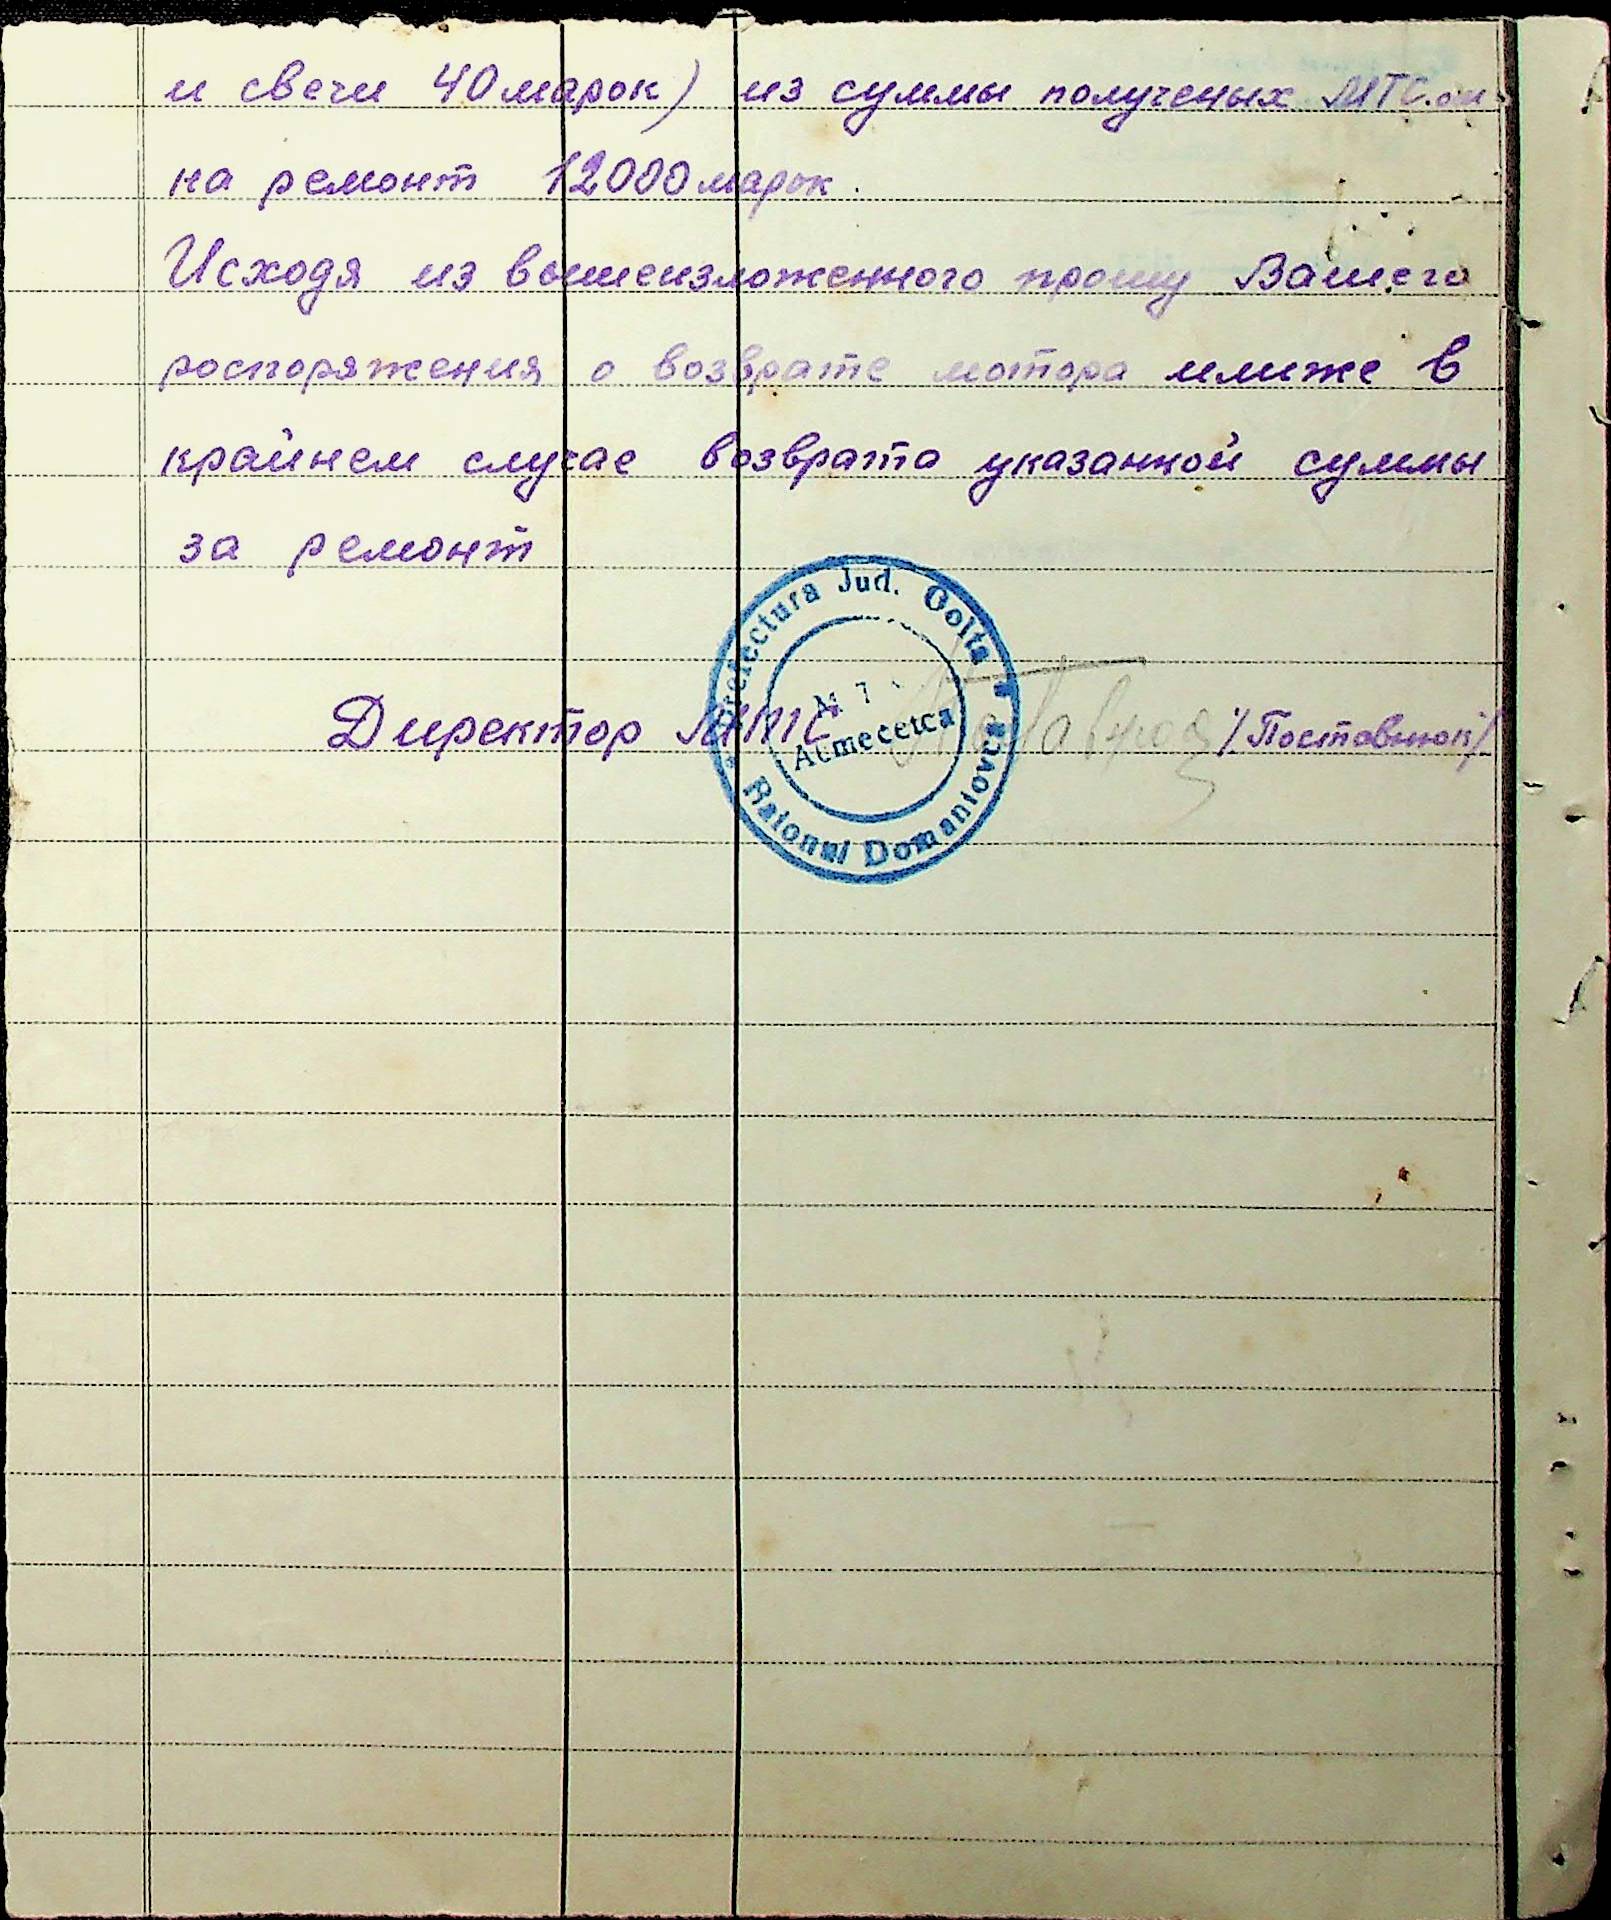 и свечи 40 марок) из суммы полученых МТС.ои
на ремонт 12000 марок.
Исходя из вышеизложенного прошу Вашего
роспоряжения о возврате мотора илиже в
крайнем случае возврата указанной суммы
за ремонт
Prefectura Jud. Golta
M T
Atmecetca
Raionul Domaniovca
Директор МТС /Поставнюк/